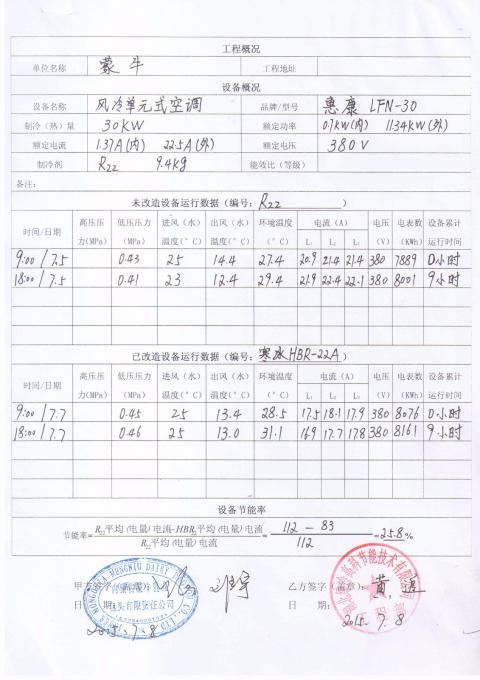 工程概况
单位名称 蒙牛 工程地址
设备概况
设备名称 风冷单元式空调 品牌/型号 惠康 LFN-30
制冷（热）量 30KW 额定功率 0.7KW(内) 11.34KW(外)
额定电流 1.37A(内) 22.5A(外) 额定电压 380V
制冷剂 R22 9.4kg 能效比（等级）
备注：
未改造设备运行数据（编号：R22）
时间/日期 高压压力(MPa) 低压压力(MPa) 进风（水）温度(°C) 出风（水）温度(°C) 环境温度(°C) 电流（A） L1 L2 L3 电压(V) 电表数(KWh) 设备累计运行时间
9:00/7.5 0.43 25 14.4 27.4 20.9 21.4 21.4 380 7889 0小时
18:00/7.5 0.41 23 12.4 29.4 21.9 22.4 22.1 380 8001 9小时
已改造设备运行数据（编号：寒冰HBR-22A）
时间/日期 高压压力(MPa) 低压压力(MPa) 进风（水）温度(°C) 出风（水）温度(°C) 环境温度(°C) 电流（A） L1 L2 L3 电压(V) 电表数(KWh) 设备累计运行时间
9:00/7.7 0.45 25 13.4 28.5 17.5 18.1 17.9 380 8076 0小时
18:00/7.7 0.46 25 13.0 31.1 16.9 17.7 17.8 380 8161 9小时
设备节能率
节能率= R22平均(电量)电流-HBR平均(电量)电流 / R22平均(电量)电流 = 112-83 / 112 =25.8%
甲方签字（盖章）： 乙方签字（盖章）： 黄
日 期： 2015.7.8 日 期： 2015.7.8
包头有限责任公司